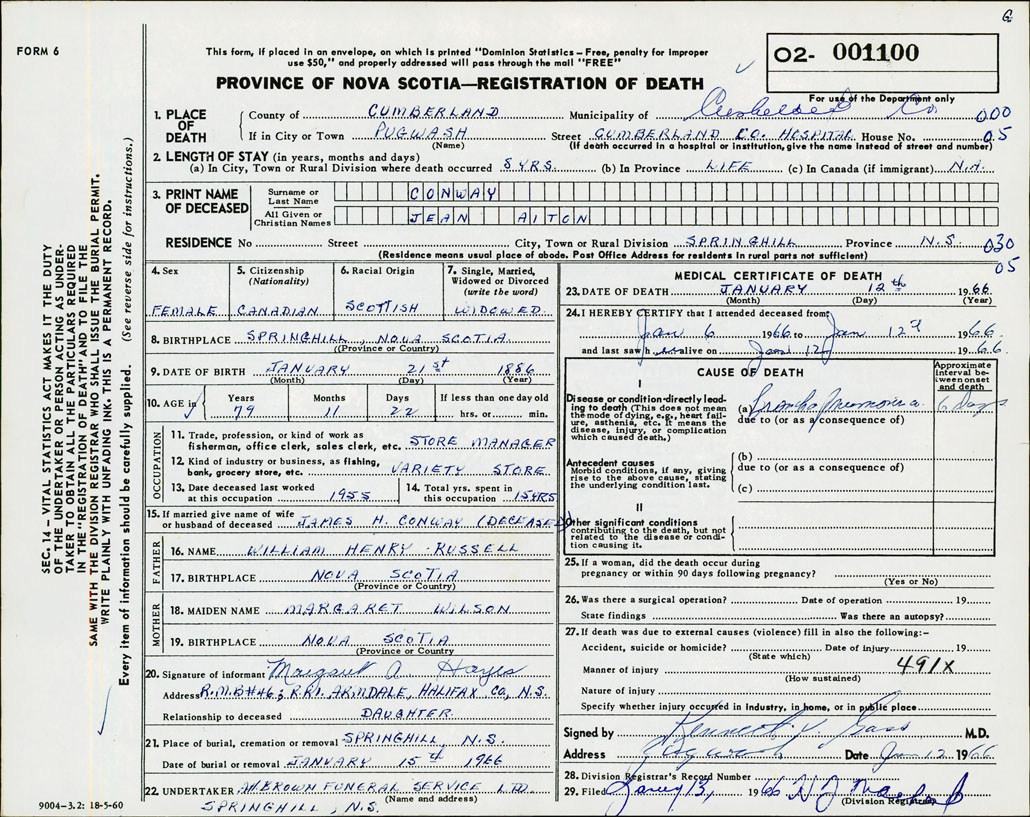 G
FORM 6
This form, if placed in an envelope, on which is printed "Dominion Statistics – Free, penalty for improper
use $50," and properly addressed will pass through the mail "FREE"
O2- 001100
PROVINCE OF NOVA SCOTIA—REGISTRATION OF DEATH
For use of the Department only
1. PLACE OF DEATH
County of CUMBERLAND Municipality of Co. 000
If in City or Town PUGWASH Street CUMBERLAND CO. HOSPITAL House No. 05
(Name) (If death occurred in a hospital or institution, give the name instead of street and number)
2. LENGTH OF STAY (in years, months and days)
(a) In City, Town or Rural Division where death occurred 8 YRS. (b) In Province LIFE (c) In Canada (if immigrant) N.A.
3. PRINT NAME OF DECEASED
Surname or Last Name CONWAY
All Given or Christian Names JEAN AITON
RESIDENCE No Street City, Town or Rural Division SPRINGHILL Province N.S. 030
(Residence means usual place of abode. Post Office Address for residents in rural parts not sufficient) 05
4. Sex FEMALE
5. Citizenship (Nationality) CANADIAN
6. Racial Origin SCOTTISH
7. Single, Married, Widowed or Divorced (write the word) WIDOWED
8. BIRTHPLACE SPRINGHILL, NOVA SCOTIA
(Province or Country)
9. DATE OF BIRTH JANUARY 21st 1886
(Month) (Day) (Year)
10. AGE in Years 79 Months 11 Days 22 If less than one day old hrs. or min.
OCCUPATION
11. Trade, profession, or kind of work as
fisherman, office clerk, sales clerk, etc. STORE MANAGER
12. Kind of industry or business, as fishing,
bank, grocery store, etc. VARIETY STORE
13. Date deceased last worked at this occupation 1955
14. Total yrs. spent in this occupation 15 YRS
15. If married give name of wife
or husband of deceased JAMES H. CONWAY (DECEASED)
FATHER
16. NAME WILLIAM HENRY RUSSELL
17. BIRTHPLACE NOVA SCOTIA
(Province or Country)
MOTHER
18. MAIDEN NAME MARGARET WILSON
19. BIRTHPLACE NOVA SCOTIA
(Province or Country)
20. Signature of informant Margaret A Hayes
Address R.M.B#46; R.R1. ARMDALE, HALIFAX CO, N.S.
Relationship to deceased DAUGHTER.
21. Place of burial, cremation or removal SPRINGHILL N.S.
Date of burial or removal JANUARY 15th 1966
22. UNDERTAKER BROWN FUNERAL SERVICE LTD.
(Name and address)
SPRINGHILL, N.S.
9004-3.2: 18-5-60
MEDICAL CERTIFICATE OF DEATH
23. DATE OF DEATH JANUARY 12th 1966
(Month) (Day) (Year)
24. I HEREBY CERTIFY that I attended deceased from
Jan 6 1966 to Jan 12th 1966
and last saw h er alive on Jan 12 1966
CAUSE OF DEATH
Approximate interval between onset and death
I
Disease or condition directly leading to death (This does not mean
the mode of dying, e.g., heart failure, asthenia, etc. It means the
disease, injury, or complication which caused death.)
(a) Broncho pneumonia 6 Days
due to (or as a consequence of)
Antecedent causes
Morbid conditions, if any, giving rise to the above cause, stating
the underlying condition last.
(b)
due to (or as a consequence of)
(c)
II
Other significant conditions
contributing to the death, but not related to the disease or condition causing it.
25. If a woman, did the death occur during
pregnancy or within 90 days following pregnancy?
(Yes or No)
26. Was there a surgical operation? Date of operation 19
State findings Was there an autopsy?
27. If death was due to external causes (violence) fill in also the following:–
Accident, suicide or homicide? Date of injury 19
(State which)
Manner of injury 491X
(How sustained)
Nature of injury
Specify whether injury occurred in Industry, in home, or in public place
Signed by Kenneth V. Gass M.D.
Address Pugwash Date Jan 12 1966
28. Division Registrar's Record Number
29. Filed 13, 1966
(Division Registrar)
SEC. 14 – VITAL STATISTICS ACT MAKES IT THE DUTY
OF THE UNDERTAKER OR PERSON ACTING AS UNDER-
TAKER TO OBTAIN ALL THE PARTICULARS REQUIRED
IN THE "REGISTRATION OF DEATH" AND TO FILE THE
SAME WITH THE DIVISION REGISTRAR WHO SHALL ISSUE THE BURIAL PERMIT.
WRITE PLAINLY WITH UNFADING INK. THIS IS A PERMANENT RECORD.
Every item of information should be carefully supplied. (See reverse side for instructions.)